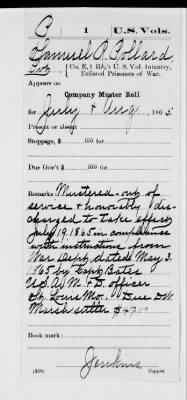 P 1 U.S. Vols.
Samuel P. Pollard
Pvt, Co. E, 1 Reg't U.S. Vol. Infantry,
Enlisted Prisoners of War.
Appears on
Company Muster Roll
for July & Aug, 1865
Present or absent
Stoppage, $ 100 for
Due Gov't $ 100 for
Remarks: Mustered out of
service & honorably dis-
charged to take effect
July 19. 1865 in compliance
with instructions from
War Dept, dated May 3.
1865 by Capt Bates
U.S.A. M. & D. officer
St. Louis Mo. Due D.W.
Marsh sutler $47.00
Book mark:
Jenkins
(858) Copyist.